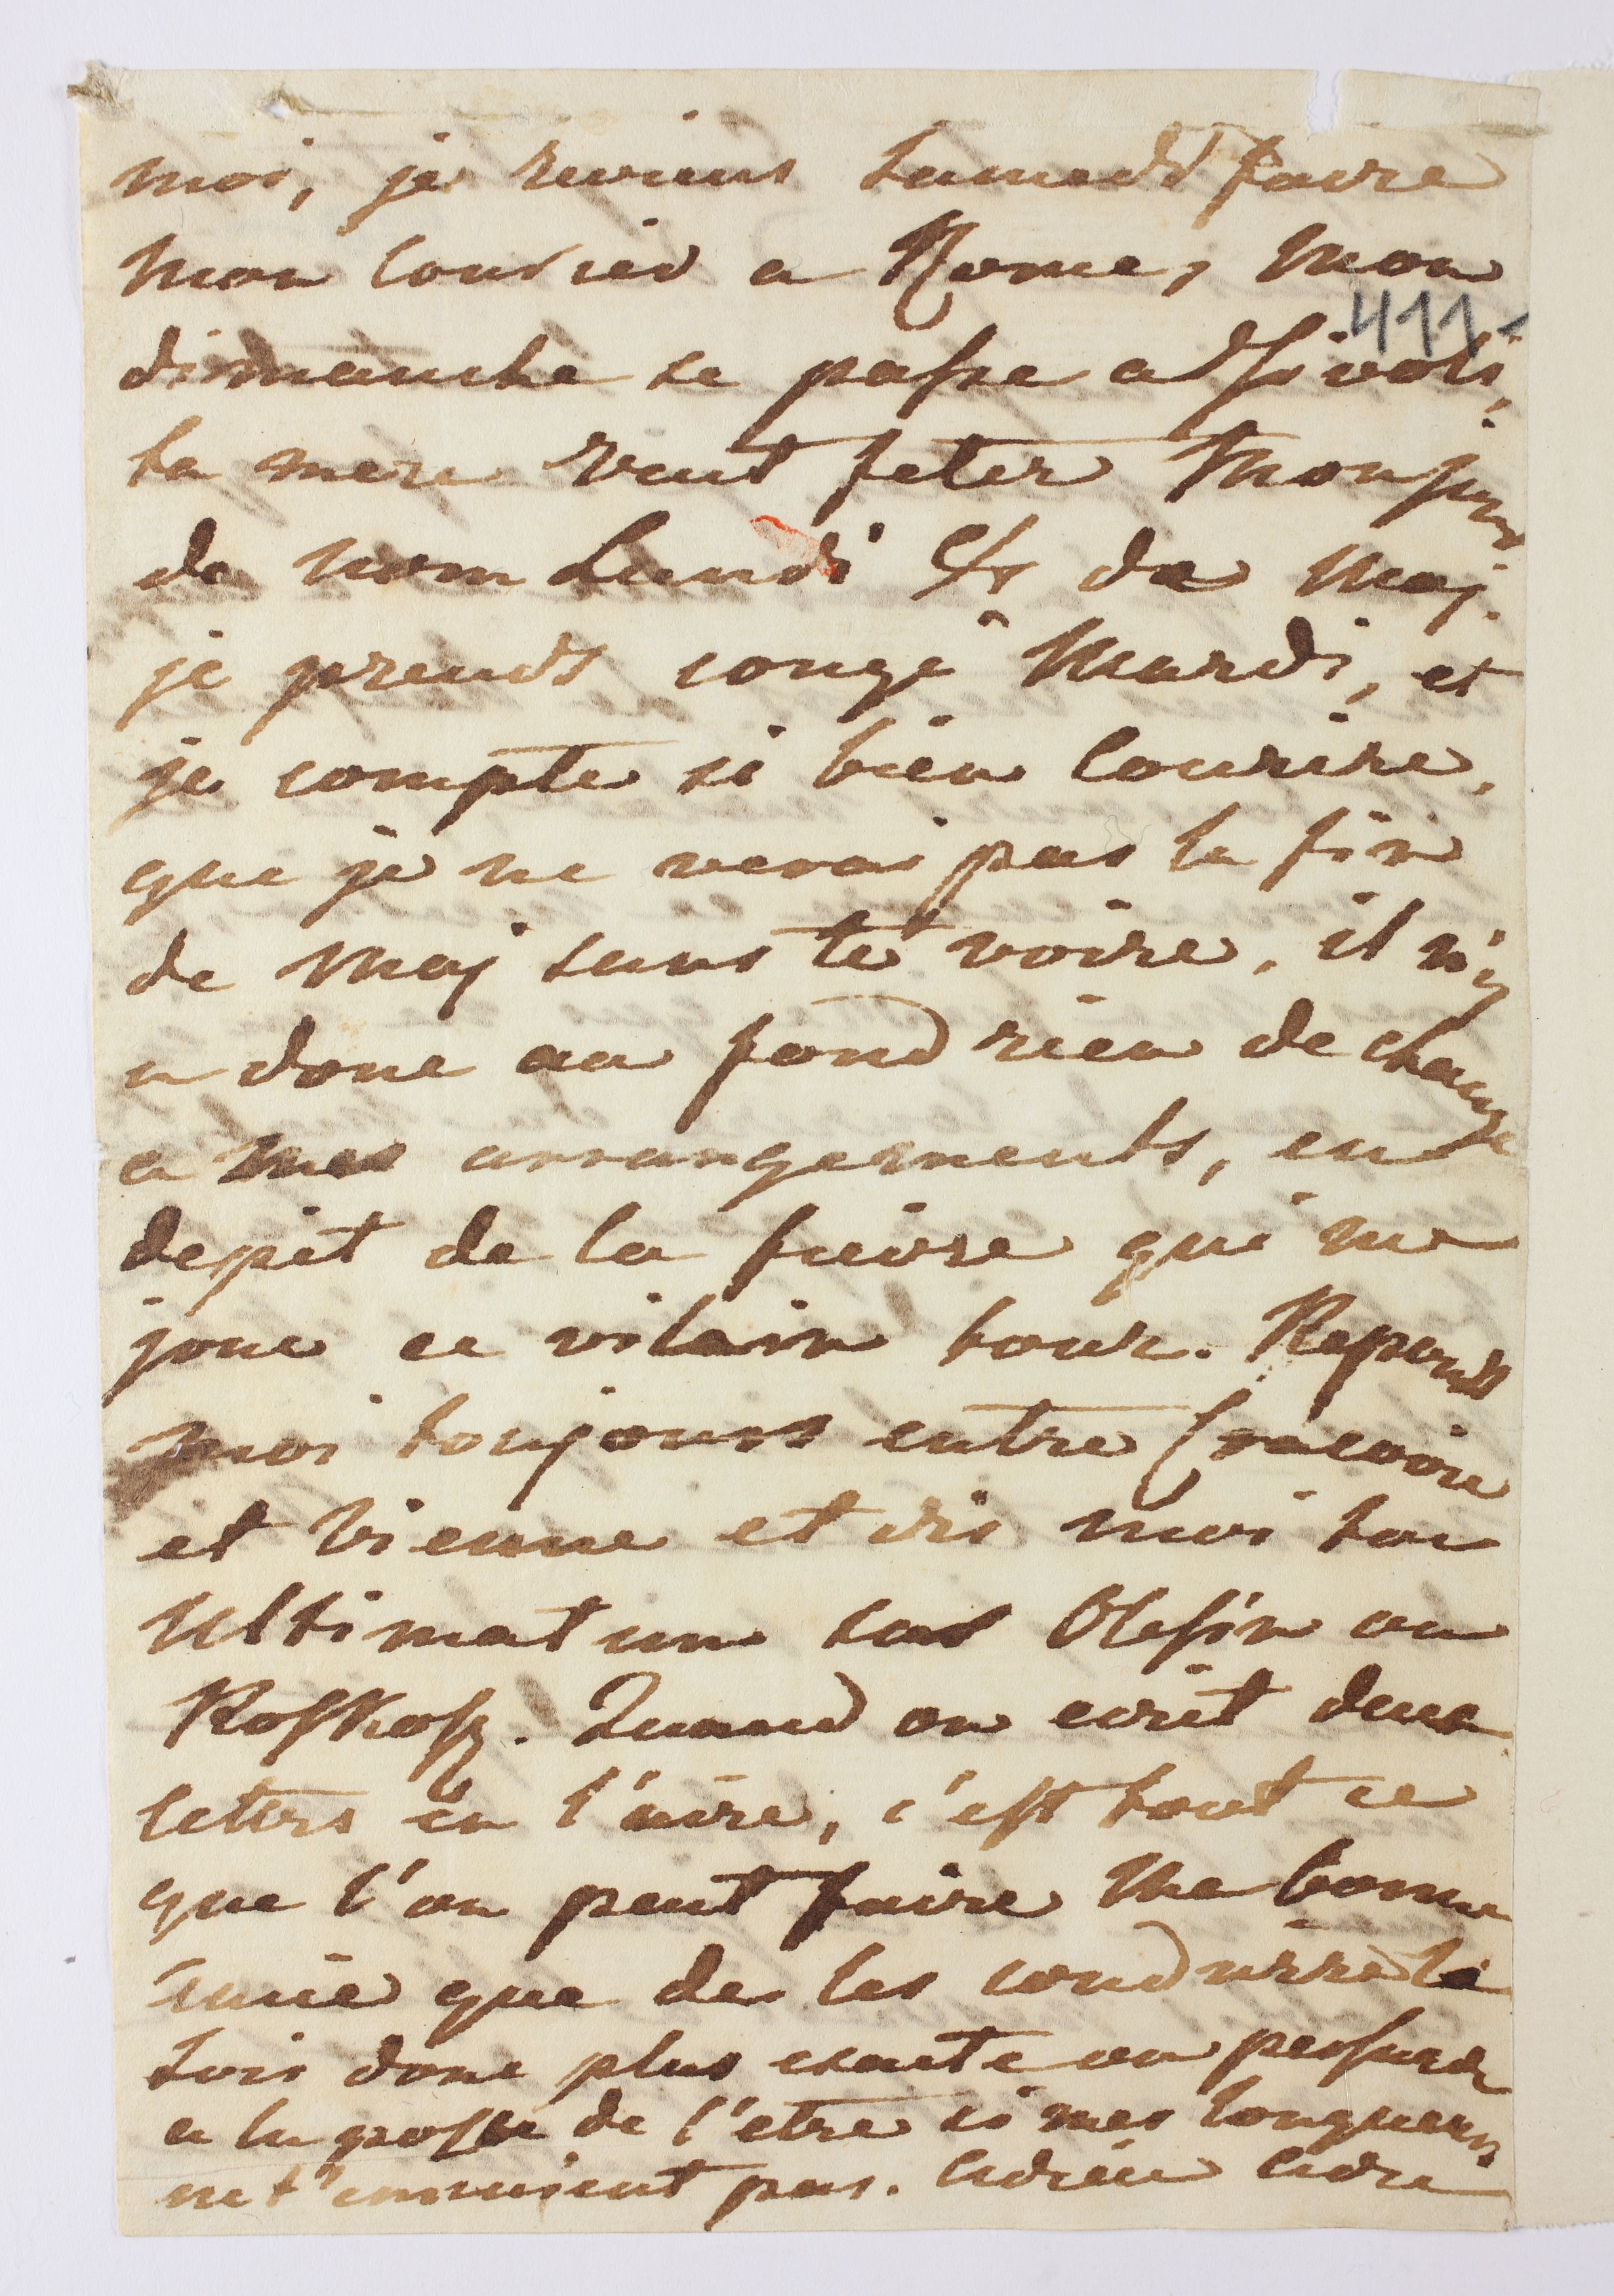 moi, je reviens samedi faire
mon courier a Rome, mon
411
dimanche se passe a Tivoli,
ta mere veut feter mon jour
de nom Lundi de Maj.
je prends congé Mardi, et
je compte si bien courire,
que je ne verai pas la fin
de Maj sans te voire, il n'y
a donc au fond rien de change
a mes arrangements, en
depit de la fievre qui me
joue ce vilain tour. Reponds
moi toujours entre Cracovie
et Vienne et dis moi ton
Ultimatum sur Olesin ou
Roskosz. Quand on ecrit deux
letters en l'aire, c'est tout ce
que l'on peut faire Ma bonne
amie que de les conduire la
sois donc plus exacte ou persuade
a la poste de l'etre si mes longueurs
ne t'ennuient pas. Adieu Adieu